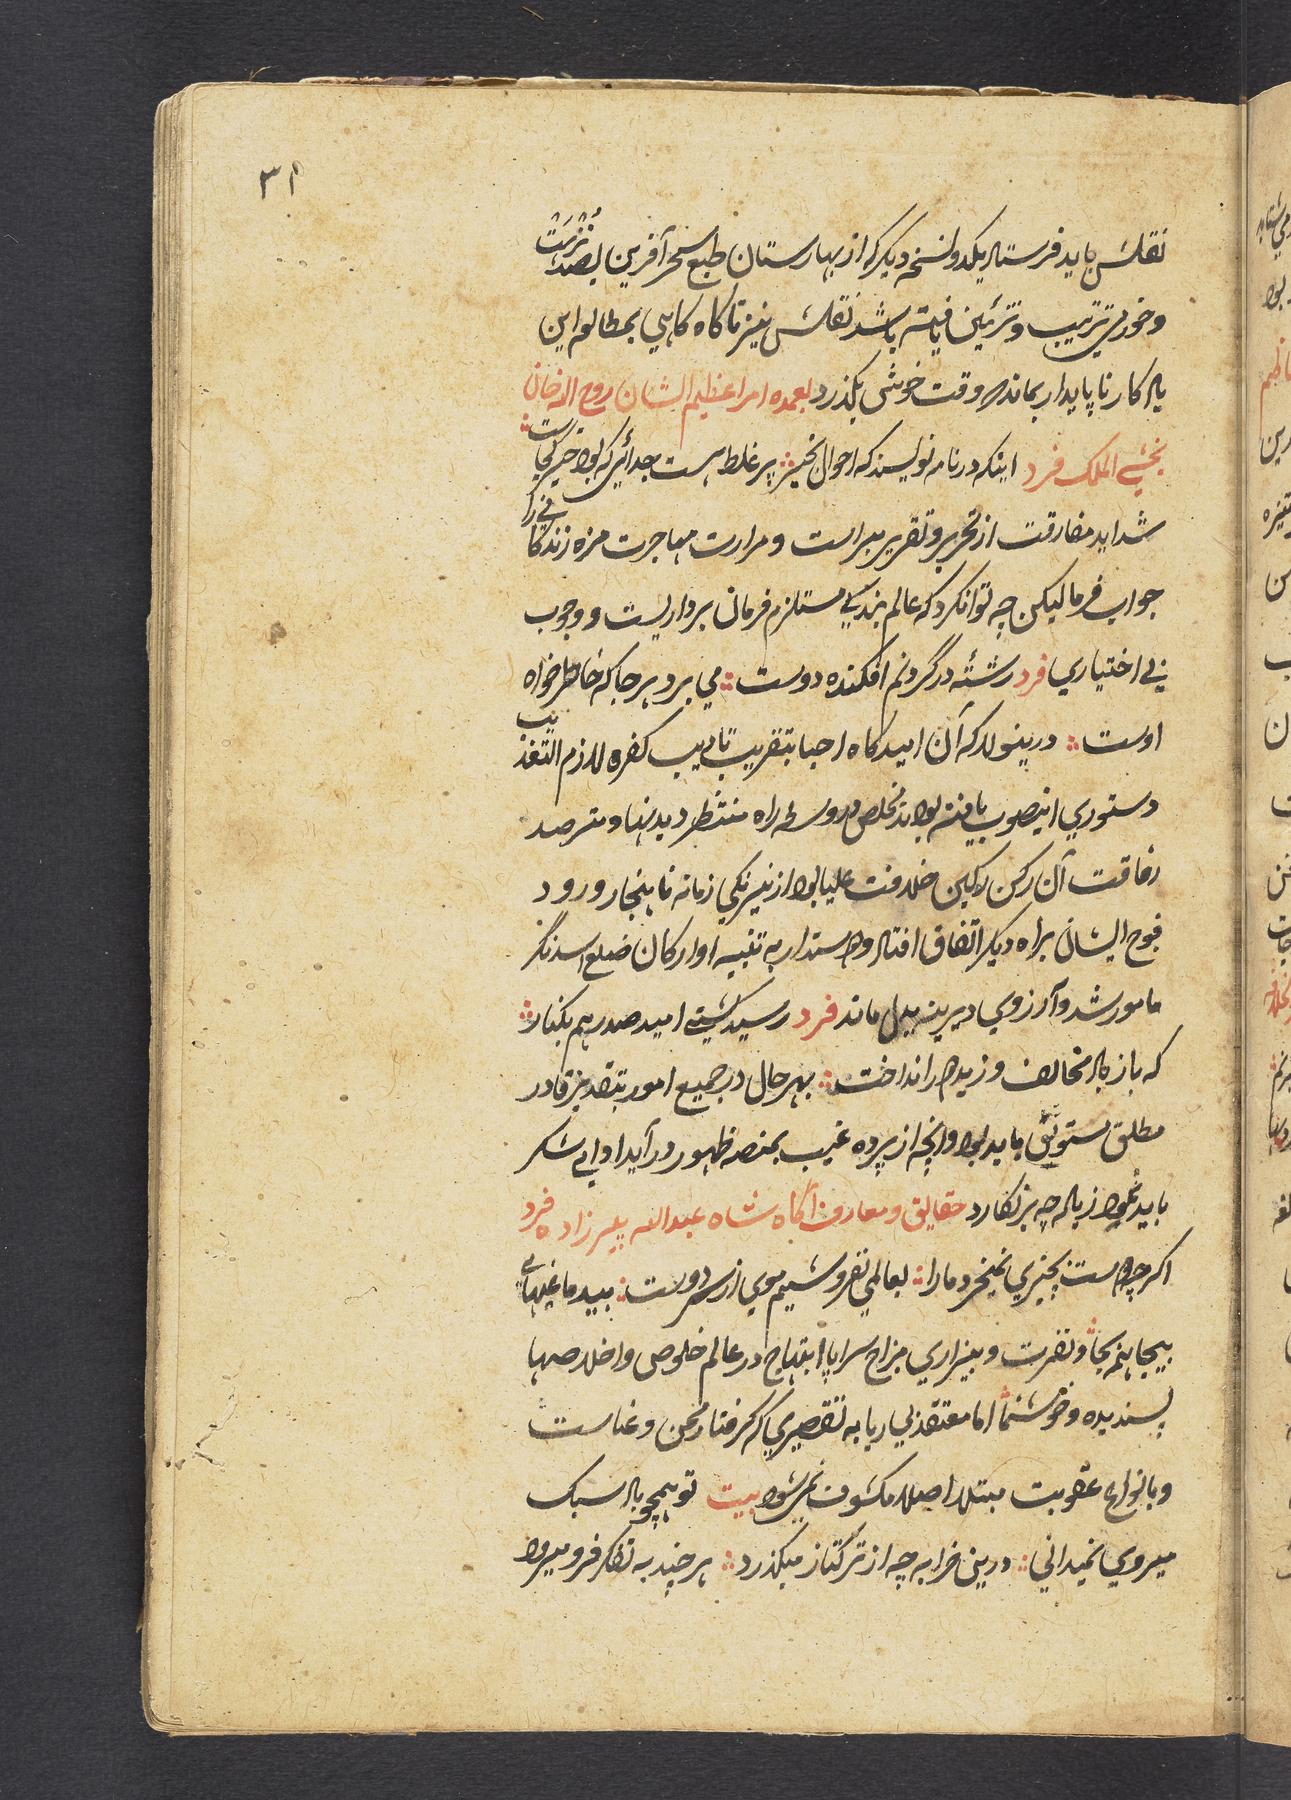 ۳۱
نقلش باید فرستاد یکدو نسخه دیگر که از بهارستان طبع سحر آفرین بصد نزهت
و خورمی ترتیب و تزئین یافته باشد نقلش نیز تا گاه گاهی بمطالعه این
یادگار ناپایدار بماند و وقت خوش بگذرد بعمده امرا عظیم الشان روح الله خان
بخشی الملک فرد اینکه در نامه نویسند که احوال بخیر پر غلط هست جدائی که بود خیر کجاست
شداید مفارقت از تحریر و تقریر مبراست و مرارت مهاجرت مزه زندگانی را
جواب فرما لیکن چه توانکرد که عالم بندگی مستلزم فرمان برداریست و وجوب
بی اختیاری فرد رشته در گردنم افکنده دوست می برد هر جا که خاطر خواه
اوست درینولا که آن امیدگاه احبا بتقریب تادیب کفره لازم التعذیب
دستوری اینصوب یافته بودند مخلص دو سه راه منتظر دیدنها و مترصد
رفاقت آن رکن رکین خلافت علیا بود از نیرنگی زمانه ناهنجار ورود
فوج ایشان براه دیگر اتفاق افتاد و استدار به تنبیه اوارکان ضلع
مامور شد و آرزوی دیرینه بدل ماند فرد رسید کشتی امید صد رهم بکنار
که باز باد مخالف وزید و در انداخت بهر حال در جمیع امور بتقدیر قادر
مطلق مستوثق باید بود و آنچه از پرده غیب بمنصه ظهور در آید ادای شکر
باید نمود زیاده چه بر نگارد حقایق و معارف آگاه شاه عبدالله پیرزاده فرد
اگر چه دوست بچیزی نمیخرد ما را بعالمی نفروشیم موی از سر دوست بیدماغیهای
بیجا هنر بجا و نفرت و بیزاری مزاج سراپا ابتهاج در عالم خلوص و اخلاصها
پسندیده و خوشنما اما معتقد بی ریا به تقصیری که گرفتار محن و عناست
و بانواع عقوبت مبتلا اصلا مکشوف نمی شود بیت تو همچو باد سبک
میروی نمیدانی درین خرابه چه از ترکتاز میگذرد هر چند به تفکر فرو میرود